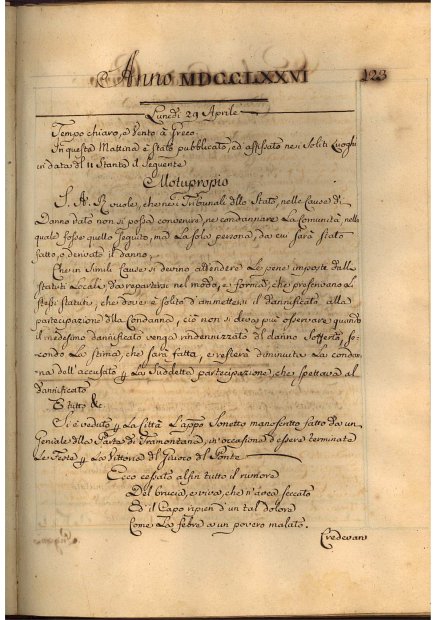 Anno MDCCLXXVI
123
Lunedì 29 Aprile
Tempo chiaro, e Vento à Greco.
In questa Mattina è Stato pubblicato, ed affissato ne i Soliti Luoghi
in data del 11 Stante il Seguente
Motuproprio
S. A. R. vuole, che nei Tribunali dllo Stato, nelle Cause di
Danno dato non si possa convenire, ne condannare La Comunità, nella
quale fosse quello Seguito, mà La Sola persona, da cui Sarà Stato
fatto, o derivato il danno.
Che in Simili Cause si devino attendere Le pene imposte dalli
Statuti Locali da repartirsi nel modo, e forma, che prescrivano Li
Stessi Statuti, che dove è Solito d'ammettersi il Dannificato alla
partecipazione dlla Condanna, ciò non si deva più osservare quando
il medesimo dannificato venga rindennizzato dl danno Sofferto, se-
condo La Stima, che Sarà fatta, e resterà diminuita La condan-
na dell'accusato p La Suddetta partecipazione, che Spettava al
Dannificato
E tutto &c.
Si è veduto p La Città L'appo Sonetto manoscritto fatto da un
Geniale dlla Parte di Tramontana, in occasione d'essere terminate
Le Feste p La Vittoria del Giuoco dl Ponte
Ecco cessato alfin tutto il rumore
Del brucia, e viva, che n'avea seccato
Ed il Capo ripien d'un tal dolore
Come La febre a un povero malato.
Credevan